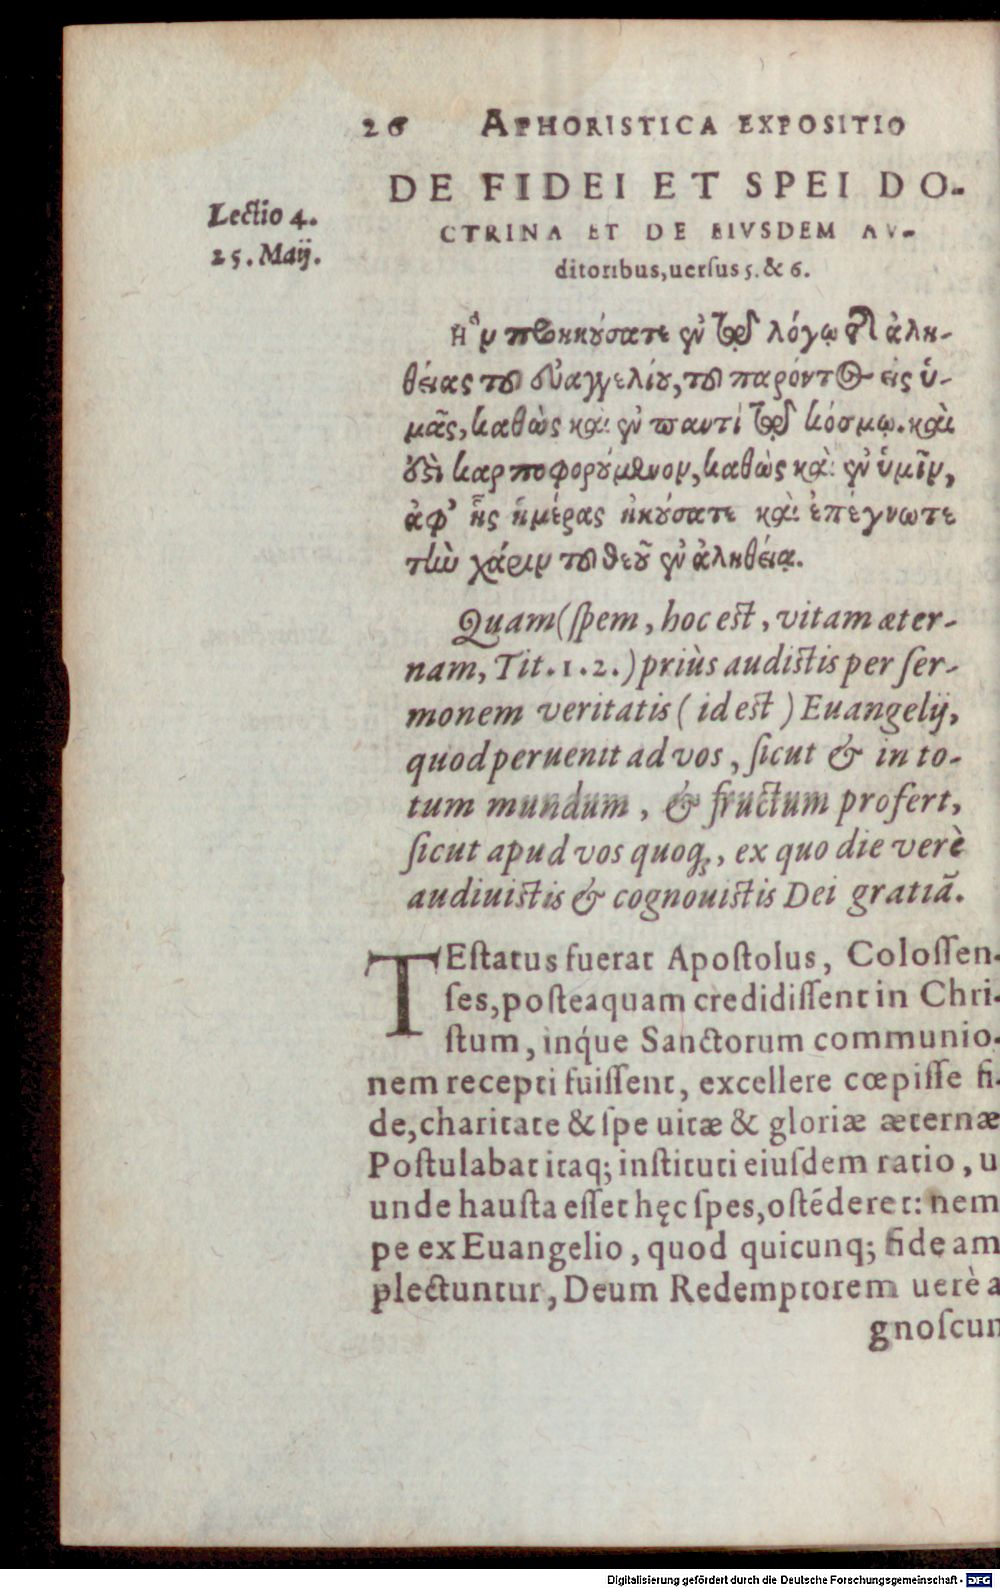 26 APHORISTICA EXPOSITIO
Lectio 4.
25. Maij.
DE FIDEI ET SPEI DO-
CTRINA ET DE EIVSDEM AV-
ditoribus, uersus 5. & 6.
Ἣν προηκούσατε ἐν τῷ λόγῳ τῆς ἀλη-
θείας τοῦ εὐαγγελίου, τοῦ παρόντος εἰς ὑ-
μᾶς, καθὼς καὶ ἐν παντὶ τῷ κόσμῳ. καὶ
ἐστὶ καρποφορούμενον, καθὼς καὶ ἐν ὑμῖν,
ἀφ' ἧς ἡμέρας ἠκούσατε καὶ ἐπέγνωτε
τὴν χάριν τοῦ θεοῦ ἐν ἀληθείᾳ.
Quam (ſpem, hoc eſt, vitam æter-
nam, Tit. 1. 2.) priùs audiſtis per ſer-
monem veritatis (id eſt) Euangelij,
quod peruenit ad vos, ſicut & in to-
tum mundum, & fructum profert,
ſicut apud vos quoq;, ex quo die verè
audiuiſtis & cognouiſtis Dei gratiã.
TEſtatus fuerat Apoſtolus, Coloſſen-
ſes, poſteaquam credidiſſent in Chri-
ſtum, inq́ue Sanctorum communio-
nem recepti fuiſſent, excellere cœpiſſe fi-
de, charitate & ſpe uitæ & gloriæ æternæ
Poſtulabat itaq; inſtituti eiuſdem ratio, u
unde hauſta eſſet hęc ſpes, oſtẽderet: nem
pe ex Euangelio, quod quicunq; fide am
plectuntur, Deum Redemptorem uerè a
gnoſcun
Digitalisierung gefördert durch die Deutsche Forschungsgemeinschaft - DFG